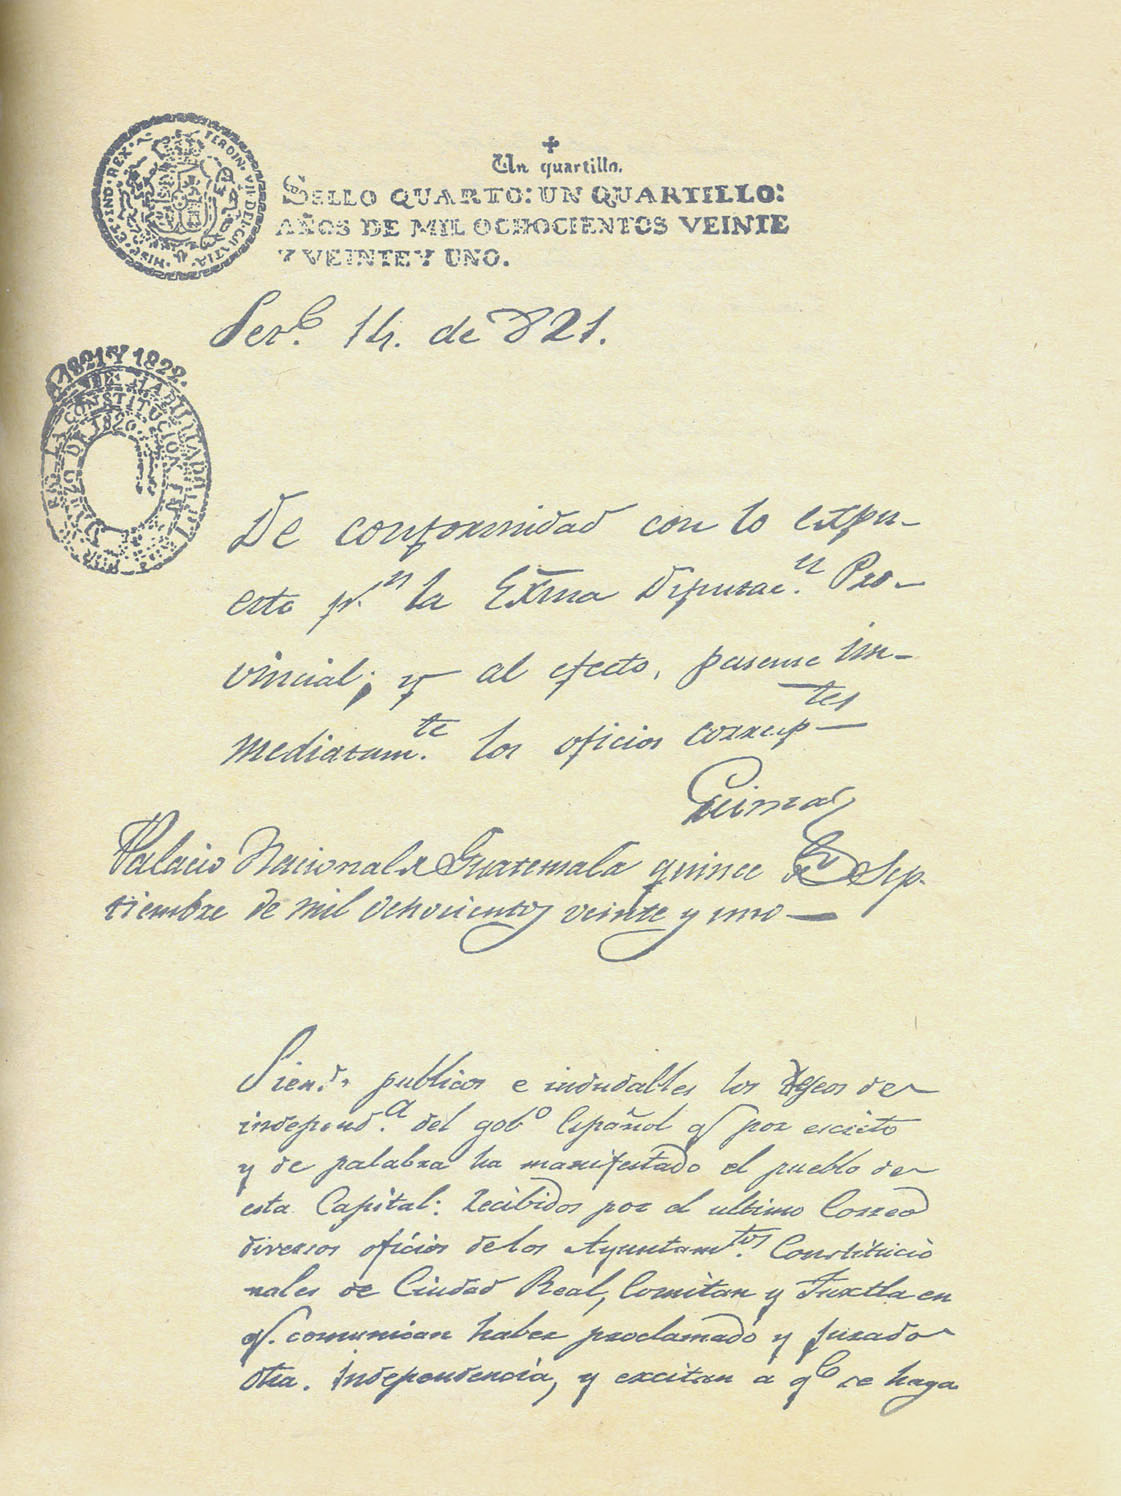 Un quartillo.
SELLO QUARTO: UN QUARTILLO:
AÑOS DE MIL OCHOCIENTOS VEINTE
Y VEINTE Y UNO.
HISP. ET IND. REX. FERDIN. VII. DEI GRATIA.
14. de 821.
1821 Y 1822.
HABILITADO
LA CONSTITUCION
DE 1820.
De conformidad con lo expu-
esto pr.n la Exma Diputac.n Pro-
vincial; y al efecto, pasense in-
mediatam.te los oficios corresp.tes
Palacio Nacional de Guatemala quince de Sep-
tiembre de mil ochocientos veinte y uno—
Siend.o publicos e indudables los deseos de
independ.a del gob.o Español q. por escrito
y de palabra ha manifestado el pueblo de
esta Capital: recibidos por el ultimo Correo
diversos oficios de los Ayuntam.tos Constitucio
nales de Ciudad Real, Comitan y Tuxtla en
q. comunican haber proclamado y jurado
dha. Independencia, y excitan a q.e se haga